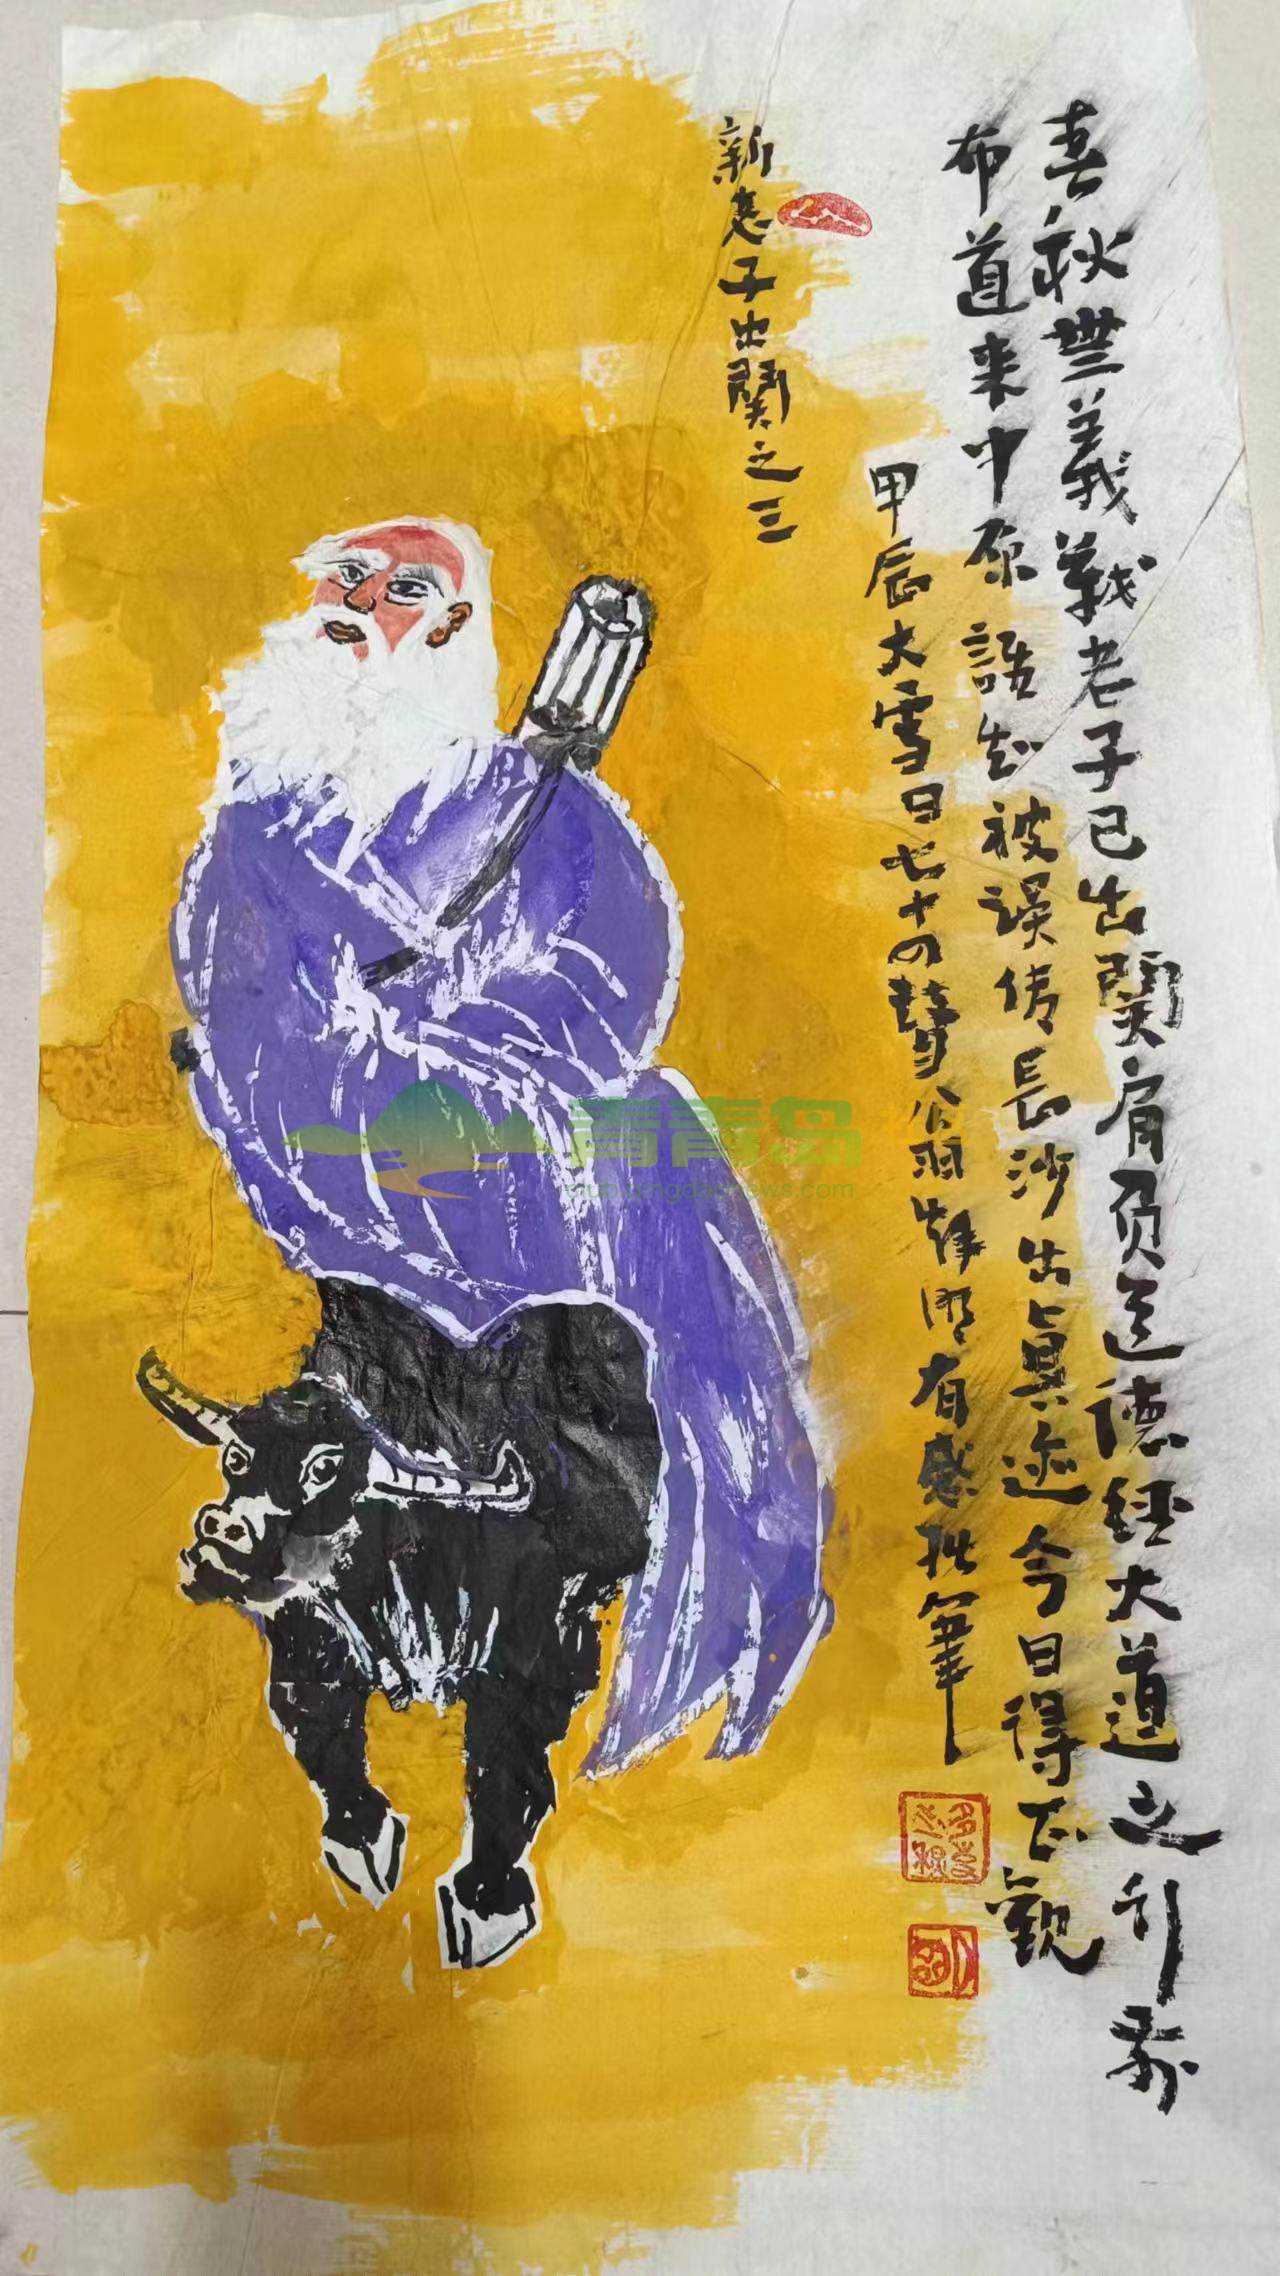 春秋無義戰老子已出關肩負道德經大道之行
布道来中原誰知被误传長沙出真迹今日得正觀
甲辰大雪日七十四翁有感拙筆
新老子出關之三
青青岛
club.qingdaonews.com